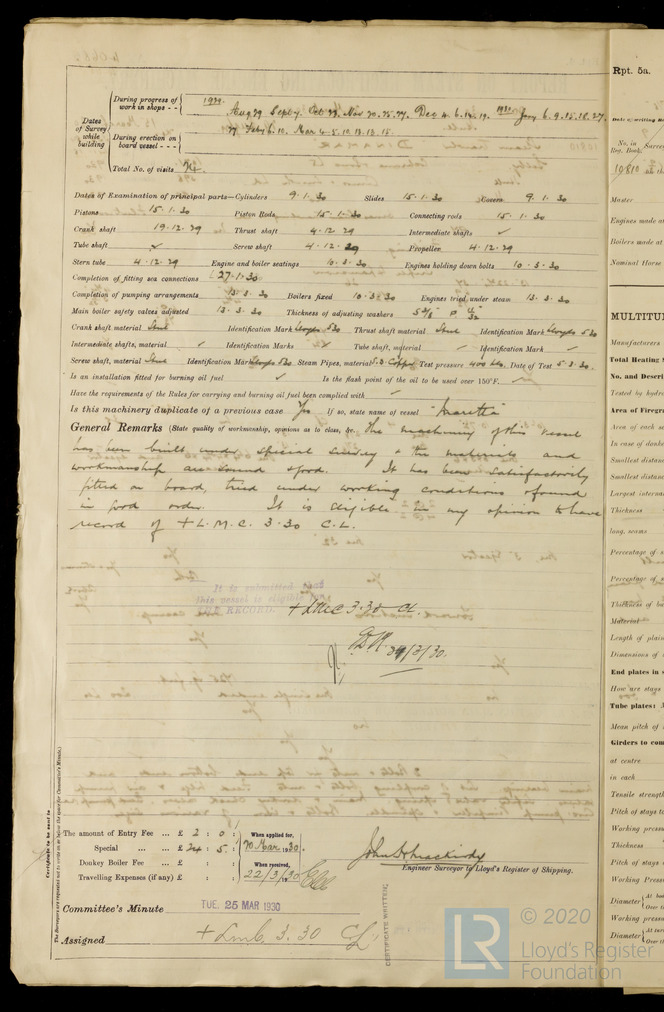 Dates of Survey while building
During progress of work in shops - - 1929. Aug 29 Sept 4. Oct 23. Nov 20. 25. 27. Dec 4. 6. 14. 19. 1930 Jany 6. 9. 15. 18. 27.
During erection on board vessel - - - Feby 6. 10. Mar 4. 5. 10. 12. 13. 15.
Total No. of visits
Dates of Examination of principal parts—Cylinders 9.1.30 Slides 15.1.30 Covers 9.1.30
Pistons 15.1.30 Piston Rods 15.1.30 Connecting rods 15.1.30
Crank shaft 19.12.29 Thrust shaft 4.12.29 Intermediate shafts ✓
Tube shaft ✓ Screw shaft 4.12.29 Propeller 4.12.29
Stern tube 4.12.29 Engine and boiler seatings 10.3.30 Engines holding down bolts 10.3.30
Completion of fitting sea connections 27.1.30
Completion of pumping arrangements 13.3.30 Boilers fixed 10.3.30 Engines tried under steam 13.3.30
Main boiler safety valves adjusted 13.3.30 Thickness of adjusting washers
Crank shaft material Steel Identification Mark Lloyds 530 Thrust shaft material Steel Identification Mark Lloyds 530
Intermediate shafts, material ✓ Identification Marks ✓ Tube shaft, material ✓ Identification Mark ✓
Screw shaft, material Steel Identification Mark Lloyds 530 Steam Pipes, material S.D. Copper Test pressure 400 lbs. Date of Test 5.3.30
Is an installation fitted for burning oil fuel ✓ Is the flash point of the oil to be used over 150°F. ✓
Have the requirements of the Rules for carrying and burning oil fuel been complied with ✓
Is this machinery duplicate of a previous case Yes If so, state name of vessel "Maretta"
General Remarks (State quality of workmanship, opinions as to class, &c. The machinery of this vessel
has been built under special survey & the materials and
workmanship are sound & good. It has been satisfactorily
fitted on board, tried under working conditions & found
in good order. It is eligible in my opinion to have
record of + L.M.C. 3.30 C.L.
It is submitted that
this vessel is eligible for
THE RECORD. + LMC 3.30 CL
24/3/30.
The amount of Entry Fee ... £ 2 : 0 : When applied for,
Special ... ... £ 24 : 5 : 20 Mar 1930
Donkey Boiler Fee ... £ : : When received,
Travelling Expenses (if any) £ : : 22/3/30
Engineer Surveyor to Lloyd's Register of Shipping.
Committee's Minute TUE. 25 MAR 1930
Assigned + LMC 3.30 CL
Certificate to be sent to
(The Surveyors are requested not to write on or below the space for Committee's Minute.)
CERTIFICATE WRITTEN
Rpt. 5a.
No. in Reg. Book.
Master
Engines made at
Boilers made at
Nominal Horse
MULTITU
Manufacturers
Total Heating S
No. and Descri
Tested by hydr
Area of Firegra
Area of each s
In case of donke
Smallest distanc
Smallest distanc
Largest interna
Thickness
long. seams
Percentage of s
Percentage of s
Thickness of bo
Material
Length of plain
Dimensions of
End plates in s
How are stays
Tube plates:
Mean pitch of
Girders to com
at centre
in each
Tensile strength
Pitch of stays to
Working pressu
Thickness
Pitch of stays
Working Press
Diameter
Working pressu
Diameter
© 2020
LR
Lloyd's Register
Foundation